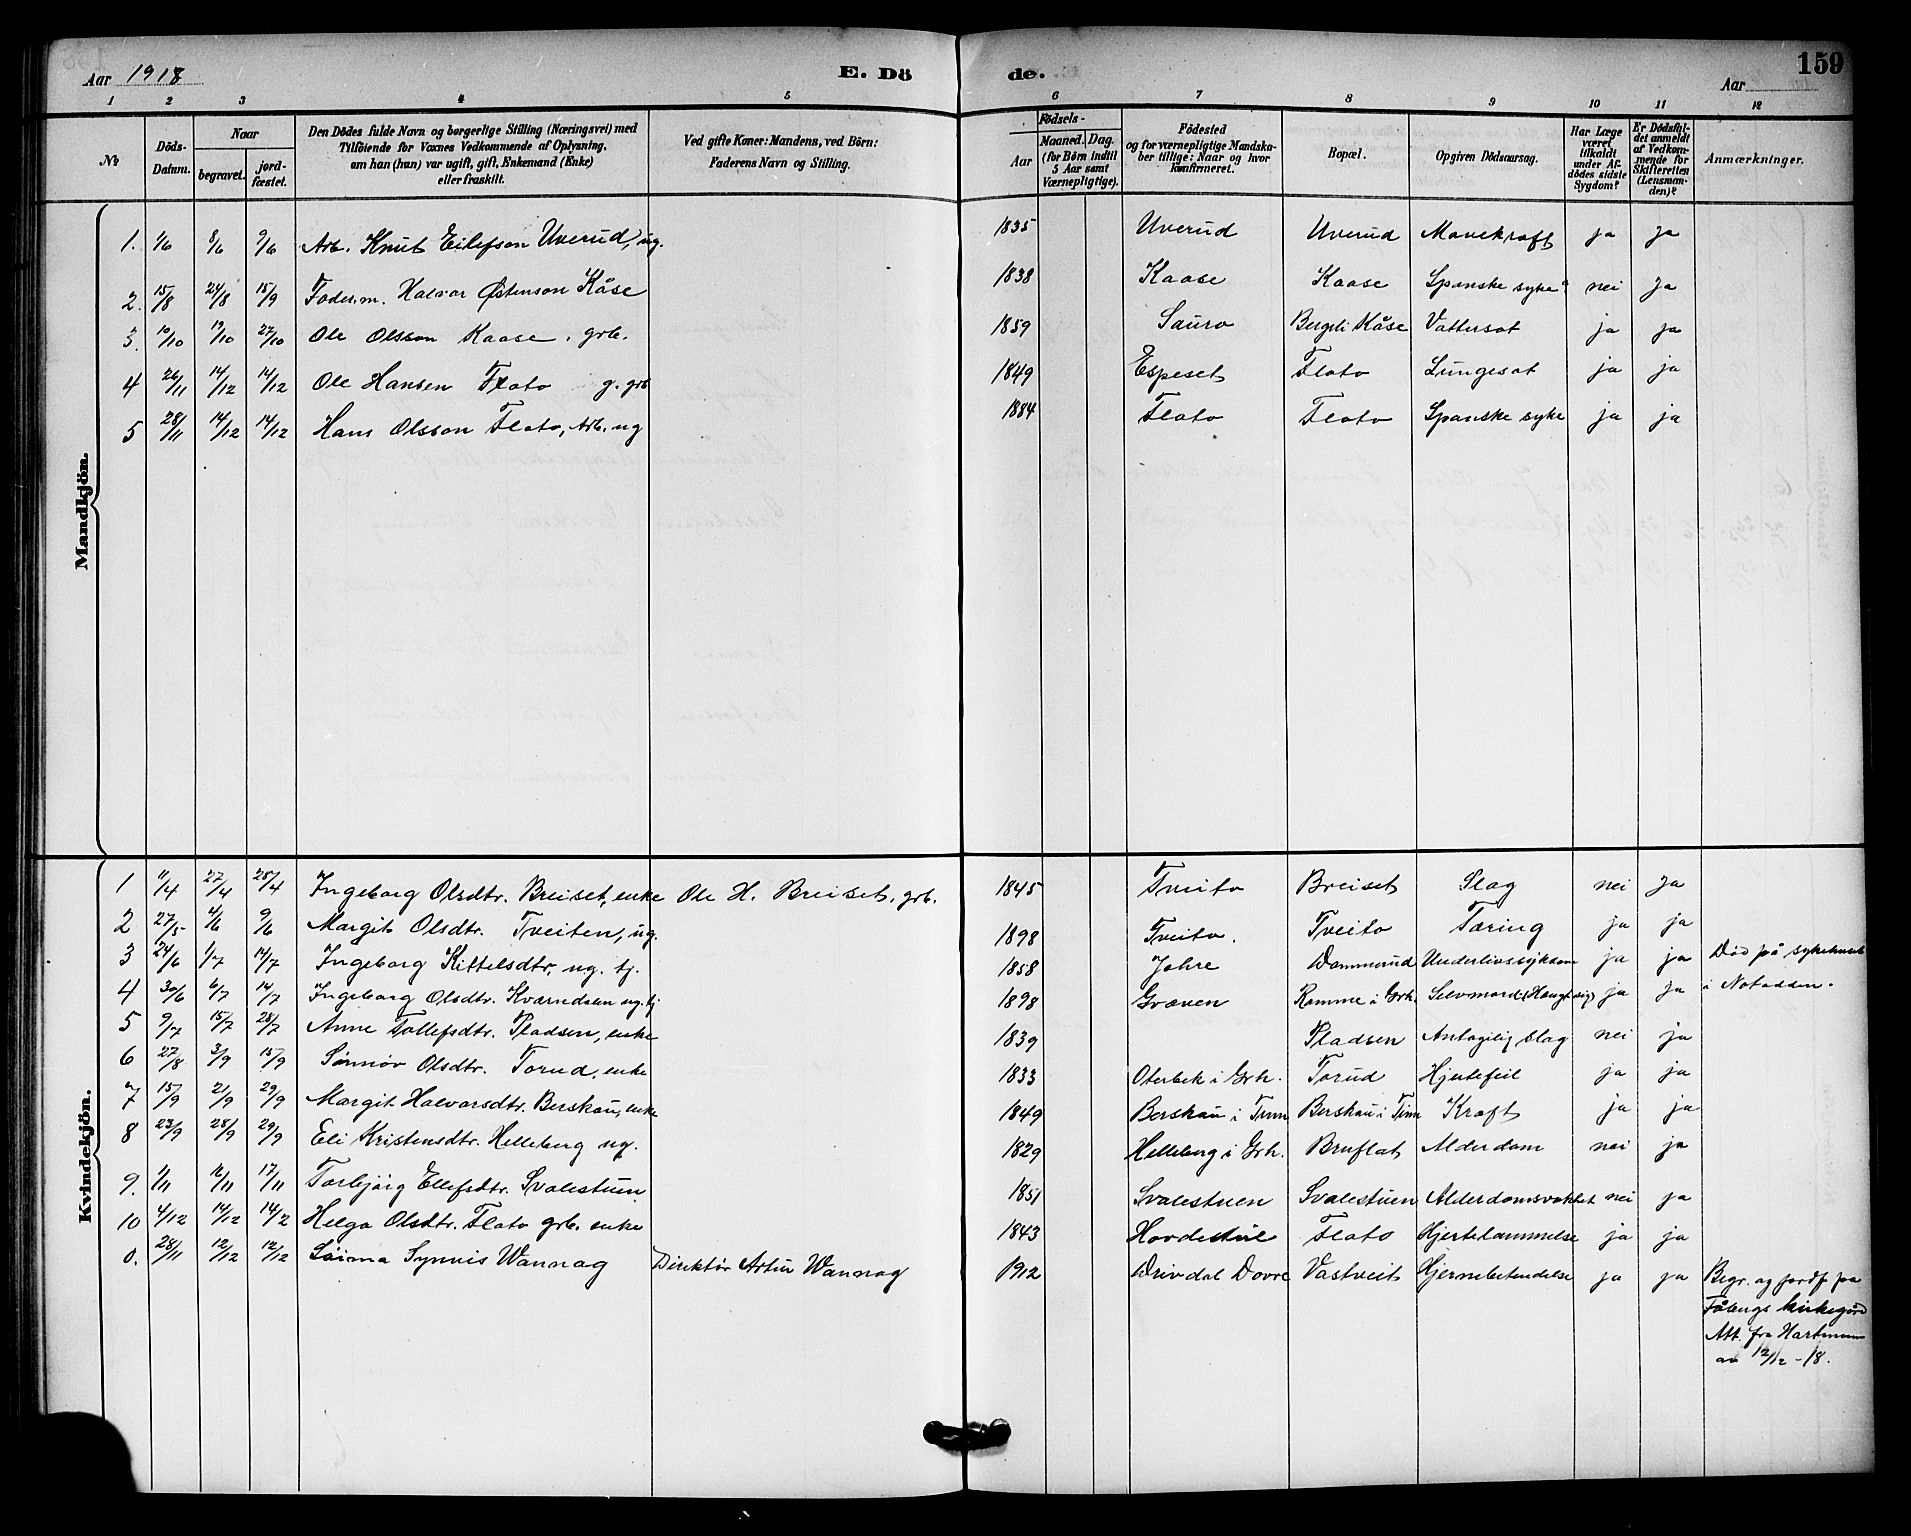 Aar 1918 E. Dö de. Aar 159
1 2 3 4 5 6 7 8 9 10 11 12
№
Döds-
Datum.
Naar
begravet.
jord-
fæstet.
Den Dödes fulde Navn og borgerlige Stilling (Næringsvei) med
Tilföiende for Voxnes Vedkommende af Oplysning,
om han (hun) var ugift, gift, Enkemand (Enke)
eller fraskilt.
Ved gifte Koner: Mandens, ved Börn:
Faderens Navn og Stilling.
Födsels-
Aar
Maaned. Dag.
(for Börn indtil
5 Aar samt
Værnepligtige).
Födested
og for værnepligtige Mandska-
ber tillige: Naar og hvor
konfirmeret.
Bopæl.
Opgiven Dödsaarsag.
Har Læge
været
tilkaldt
under Af-
dödes sidste
Sygdom?
Er Dödsfal-
det anmeldt
af Vedkom-
mende for
Skifteretten
(Lensman-
den)?
Anmærkninger.
Mandkjön.
1. 1/6 8/6 9/6 Arb. Knut Eilefson Uverud, ug. 1835 Uverud Uverud Mavekræft ja ja
2. 15/8 24/8 15/9 Føderm. Halvor Østenson Kåse 1838 Kaase Kaase Spanske syke? nei ja
3. 10/10 19/10 27/10 Ole Olsson Kaase. grb. 1859 Sauro Bergli Kåse Vattersot ja ja
4 26/11 14/12 14/12 Ole Hansen Flato g. grb 1849 Espeset Flato Lungesot ja ja
5 28/11 14/12 14/12 Hans Olsson Flato, Arb. ug 1884 Flato Flato Spanske syke ja ja
Kvindekjön.
1 11/4 27/4 28/4 Ingeborg Olsdtr. Breiset, enke Ole H. Breiset, grb. 1845 Tveito Breiset Slag nei ja
2 27/5 4/6 9/6 Margit Olsdtr. Tveiten, ug. 1898 Tveito. Tveito Tæring ja ja
3 24/6 1/7 14/7 Ingeborg Kittelsdtr, ug. tj. 1858 Johre Dammerud Underlivssykdom ja ja Død på sykehuset
4 30/6 6/7 14/7 Ingeborg Olsdtr. Kværndalen ug. tj 1898 Græven Ramme i Grh. Selvmord (Hængt sig) ja ja i Notodden.
5 9/7 15/7 28/7 Anne Tollefsdtr. Pladsen, enke 1839 Pladsen Antagelig slag nei ja
6 27/8 3/9 15/9 Sønnøv Olsdtr. Torud, enke 1833 Oterbek i Grh. Torud Hjertefeil ja ja
7 15/9 21/9 29/9 Margit Halvorsdtr. Berskau, enke 1849 Berskau i Tinn Berskau i Tinn Kræft ja ja
8 23/9 28/9 29/9 Eli Kristensdtr. Helleberg ug. 1829 Helleberg i Grh. Bruflat Alderdom nei ja
9. 1/11 16/11 17/11 Torbjørg Ellefsdtr. Svalestuen 1851 Svalestuen Svalestuen Alderdomssvakhet nei ja
10 4/12 14/12 14/12 Helga Olsdtr. Flato grb. enke 1843 Hovdestuel Flato Hjertelammelse ja ja
0. 28/11 12/12 12/12 Synvis Wannag Direktør Artur Wannag 1912 Drivdal Dovre Vastveit Hjernebetendelse ja ja Begr. og jordf på
Fåbergs kirkegård
Att. fra
av 12/12-18.